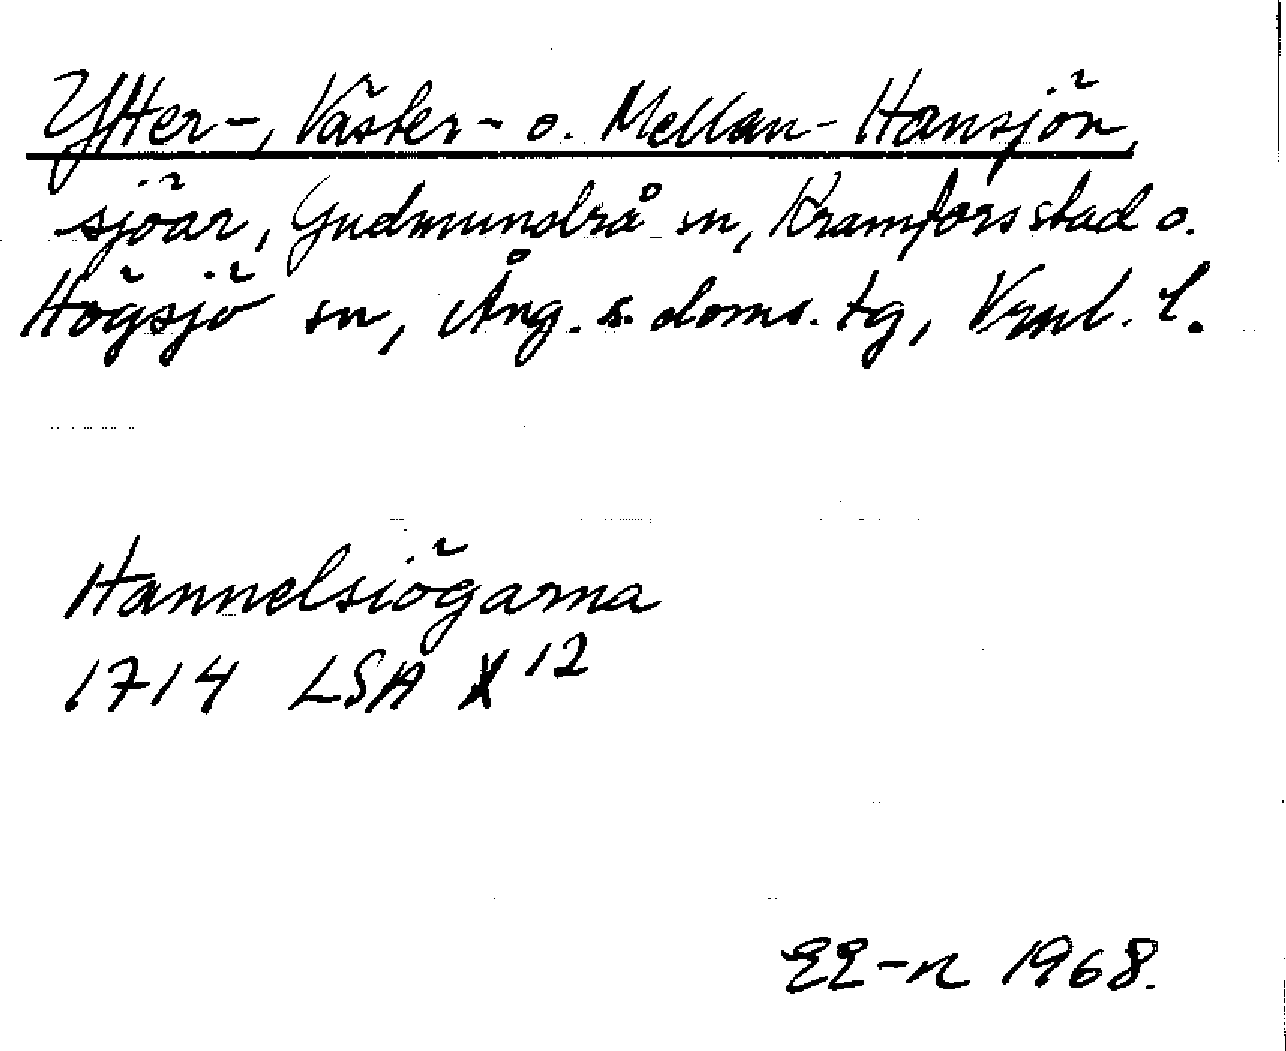 Ytter-, Väster- o. Mellan-Hansjön,
sjöar, Gudmundrå sn, Kramfors stad o.
Högsjö sn, Ång. s. doms. tg, Vrnl. l.
Hannelsiögarna
1714 LSA X 12
EE-n 1968.